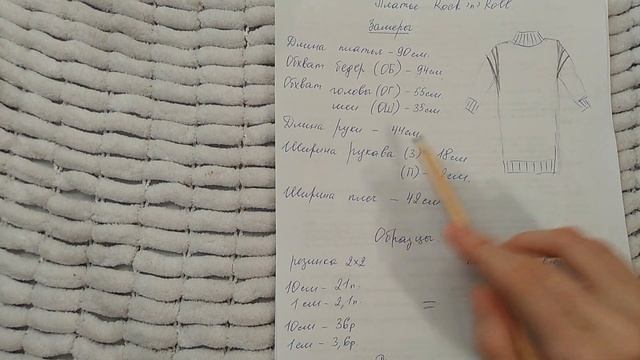 Платье Rock'n'Roll
Замеры
Длина платья - 90см.
Обхват бедер (ОБ) - 94см
Обхват головы (ОГ) - 55см
шеи (ОШ) - 35см
Длина руки - 44см
Ширина рукава (З) 18см
(П)
Ширина плеч - 42см
Образцы
резинка 2х2
10см - 21п.
1см - 2,1п.
=
10см - 3
1см - 3,